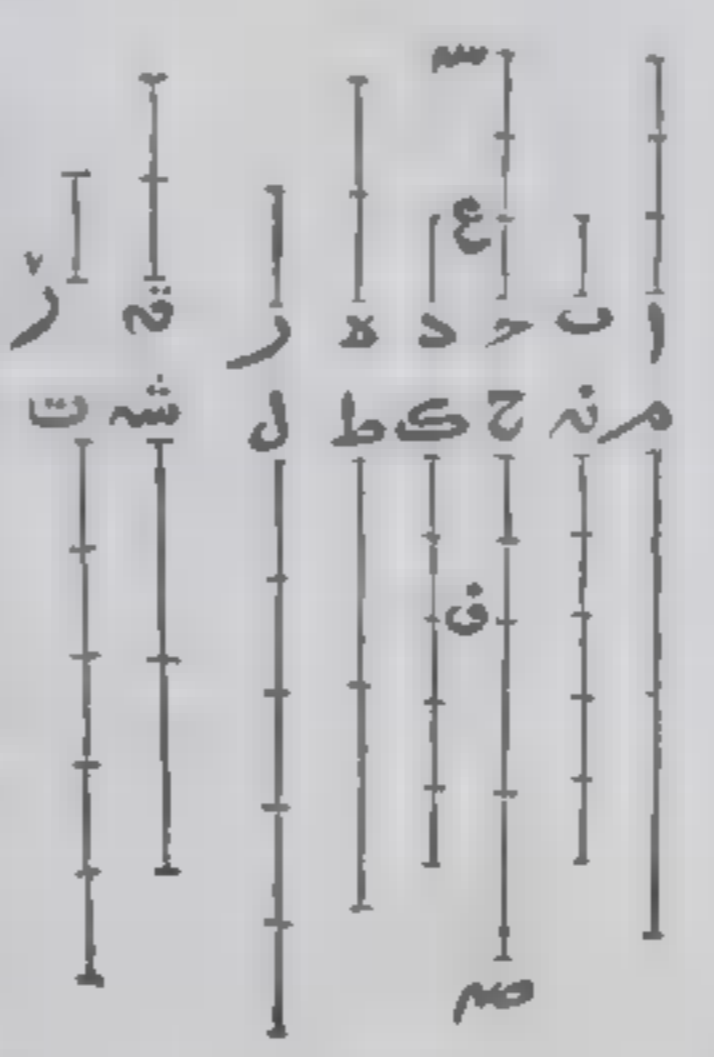 س
ع
ا ب ج د ه ر ق ر
م ن ح ك ط ل ش ت
ف
ص